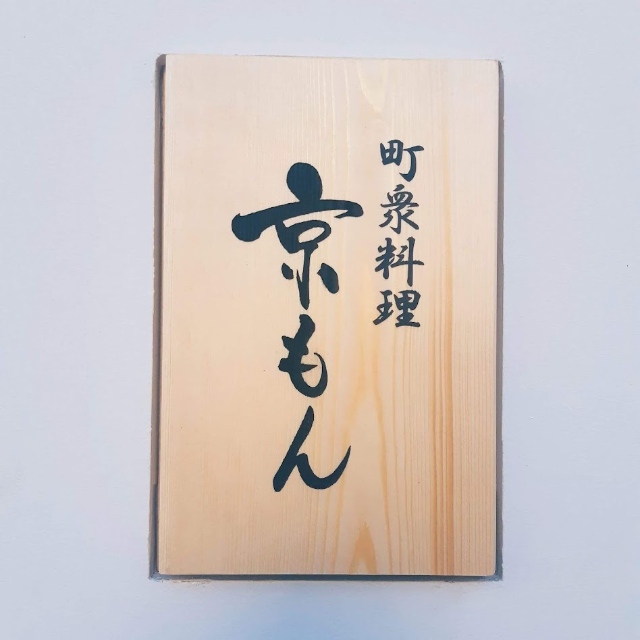 町衆料理
京もん